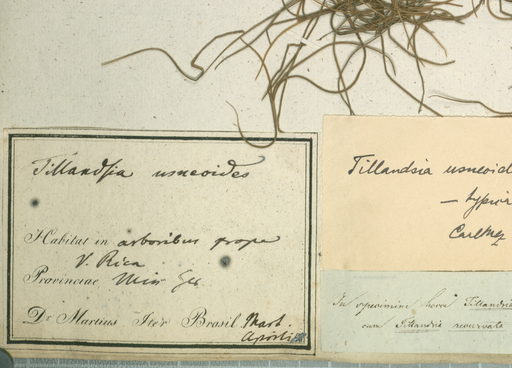 Tillandsia usneoides
Habitat in arboribus prope
V. Rica
Provinciae Min Ger
Dr Martius Iter Brasil. Mart.
Aprili
Tillandsia usneoid
— typica
Carl Mez
In specimine hocce Tillandsia
cum Tillandsia recurvata